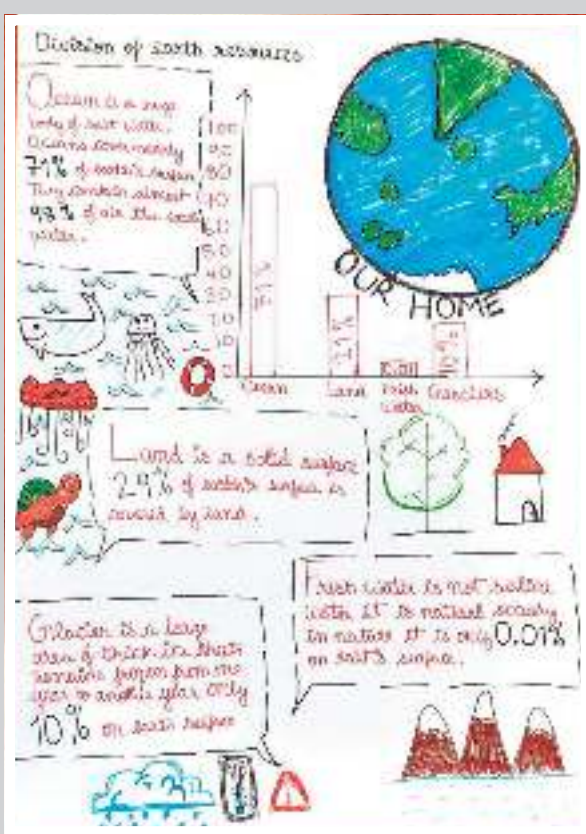 Division of earth resources
Ocean is a huge
body of salt water.
Oceans cover nearly
71% of earth's surface
They contain almost
98% of all the
water.
100
90
80
60
50
40
30
20
10
0
71%
29%
10%
Ocean
Land
Fresh
water
Glaciers
OUR HOME
Land is a solid surface
29% of earth's surface is
covered by land.
Fresh water is not saline
water it is natural
in nature it is only 0.01%
on earth's surface.
Glacier is a large
area of thick ice that
remains frozen from one
year to another year only
10% on earth surface